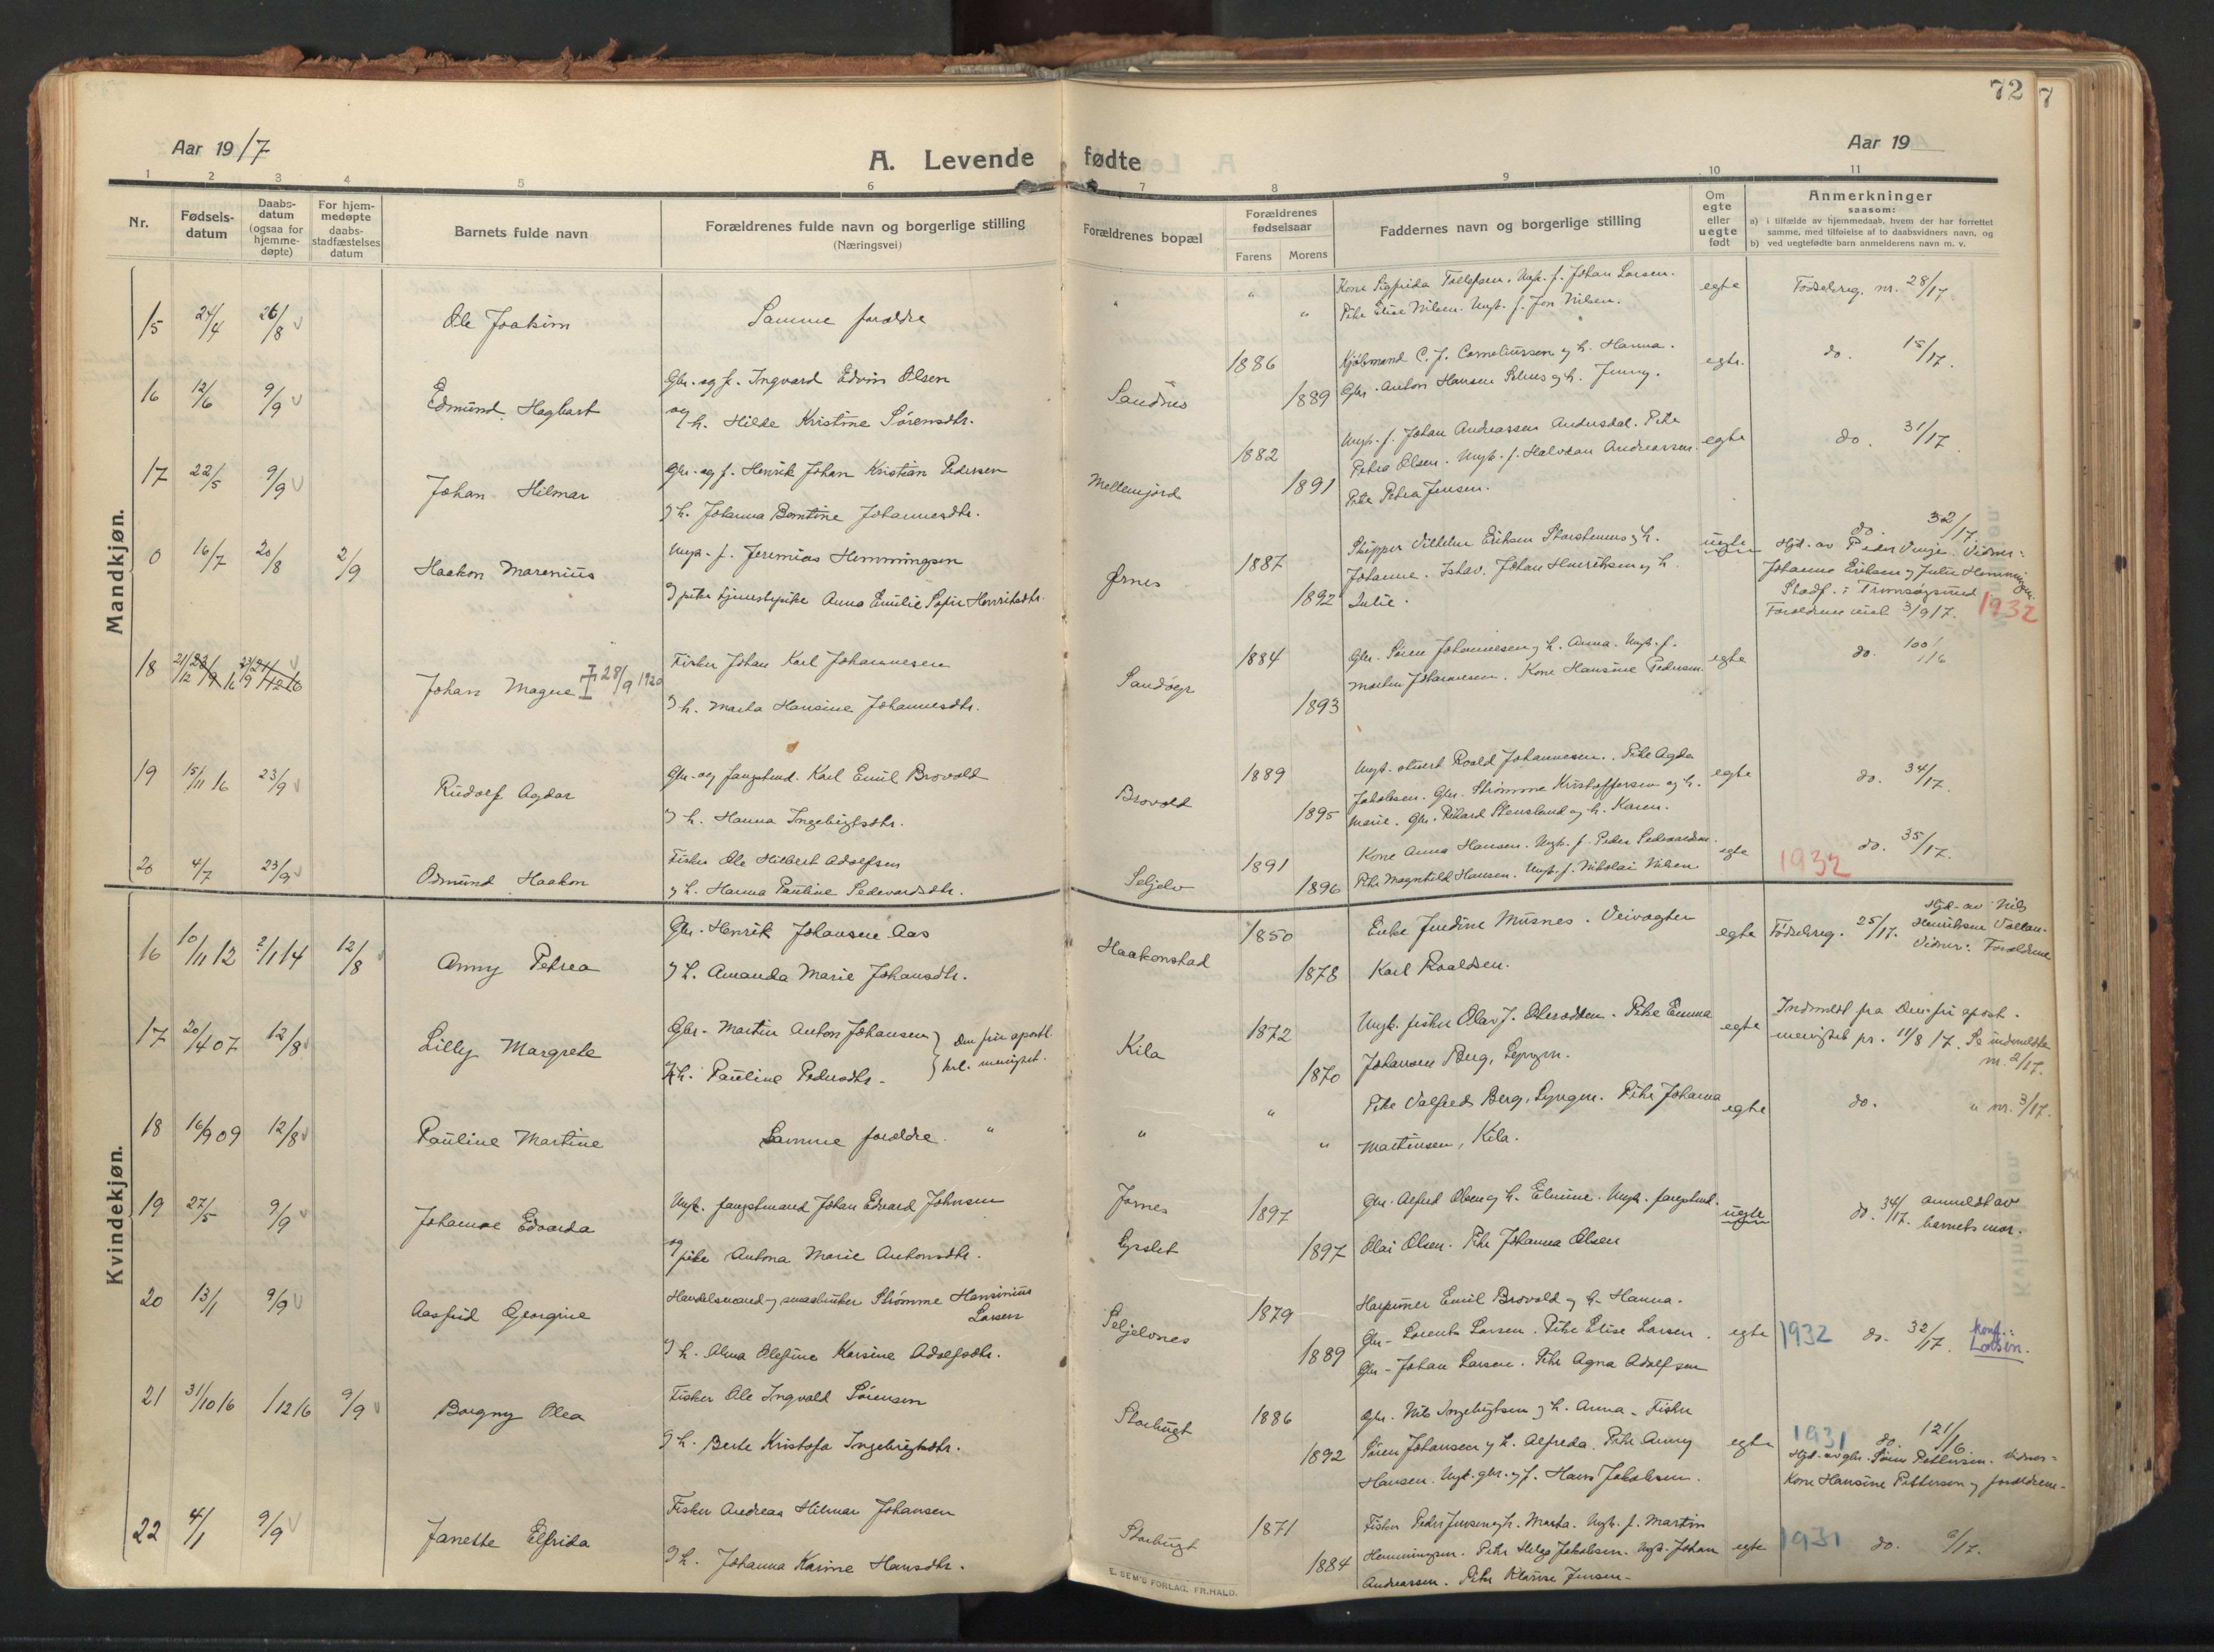 72
7
Aar 19/7
A. Levende fødte
Aar 19
1 2 3 4 5 6 7 8 9 10 11
Nr.
Fødsels-
datum
Daabs-
datum
(ogsaa for
hjemme-
døpte)
For hjem-
medøpte
daabs-
stadfæstelses
datum
Barnets fulde navn
Forældrenes fulde navn og borgerlige stilling
(Næringsvei)
Forældrenes bopæl
Forældrenes
fødselsaar
Farens Morens
Faddernes navn og borgerlige stilling
Om
egte
eller
uegte
født
Anmerkninger
saasom:
a) i tilfælde av hjemmedaab, hvem der har forrettet
samme, med tilføielse af to daabsvidners navn, og
b) ved uegtefødte barn anmelderens navn m. v.
Mandkjøn.
15 24/4 26/8 Ole Joakim Samme forældre " " "
Kone Sigfrida Tollefsen. Ungk. f. Johan Larsen.
Pike Elise Nilsen. Ungk. f. Jon Nilsen.
egte Fødselsreg. nr. 28/17.
16 12/6 9/9 Edmund Hagbart
Gbr. og f. Ingvard Edvin Olsen
og h. Hilde Kristine Sørensdtr.
Sandnes 1886 1889
Kjøbmand C. J. Corneliussen og h. Hanna.
Gbr. Anton Hansen Selnes og h. Jenny.
egte. do. 15/17.
17 22/5 9/9 Johan Hilmar
Gbr. og f. Henrik Johan Kristian Pedersen
og h. Johanna Berntine Johannesdtr.
Mellemjord 1882 1891
Ungk. f. Johan Andreassen Andersdal. Pike
Petra Olsen. Ungk. f. Halvdan Andreassen.
Pike Petra Jensen.
egte do. 31/17.
0 16/7 20/8 2/9 Haakon Marenius
Ungk. f. Jeremias Hemmingsen
og pike tjenestepike Anna Emilie Sofie Henriksdtr.
Ørnes 1887 1892
Skipper Vilhelm Eriksen Storstennes og h.
Johanne. Ishav. Johan Henriksen og h.
Julie.
uegte do. 32/17.
Hjd. av Peder Vinje. Vidner:
Johanna Eriksen og Julie Hemmingsen.
Stadf. i Tromsøysund.
Forældrene viet 3/9 17. 1932
18 21/12 16 23/9 Johan Magne † 28/9 1920
Fisker Johan Karl Johannesen
og h. Marta Hansine Johannesdtr.
Sandøyr 1884 1893
Gbr. Søren Johannesen og h. Anna. Ungk. f.
Martin Johannesen. Kone Hansine Pedersen.
egte do. 100/16
19 15/11 16 23/9 Rudolf Agdar
Gbr. og fangstmd. Karl Emil Brovold
og h. Hanna Ingebrigtsdtr.
Brovold 1889 1895
Ungk. stuert Roald Johannesen. Pike Agda
Jakobsen. Gbr. Strømme Kristoffersen og h.
Marie. Gbr. Rikard Stensland og h. Karen.
egte do. 34/17.
20 4/7 23/9 Odmund Haakon
Fisker Ole Hilbert Adolfsen
og h. Hanna Pauline Pedevardsdtr.
Seljelv 1891 1896
Kone Anna Hansen. Ungk. f. Peder Pedvardsen.
Pike Magnhild Hansen. Ungk. f. Nikolai Nilsen
egte 1932 do. 35/17.
Kvindekjøn.
16 10/11 12 2/1 14 12/8 Anny Petrea
Gbr. Henrik Johansen Aas
og h. Amanda Marie Johansdtr.
Haakonstad 1850 1878
Enke Jendine Musnes. Veivogter
Karl Roaldsen.
egte Fødselsreg. 25/17. Hjd. av Nils
Henriksen Vollan.
Vidner: Forældrene
17 20/4 07 12/8 Lilly Margrete
Gbr. Martin Anton Johansen } den frie apostl.
og h. Pauline Pedersdtr. } krl. menighet.
Kila 1872 1870
Ungk. fisker Olav J. Olversdtten. Pike Emma
Johansen Berg, Lyngen.
egte Indmeldt fra Den fri apost.
menighet pr. 11/8 17. Se indmeldte
nr. 2/17.
18 16/9 09 12/8 Pauline Martine Samme forældre. " " " "
Pike Valfred Berg, Lyngen. Pike Johanna
Martinsen, Kila.
egte do. " nr. 3/17.
19 27/5 9/9 Johanne Edvarda
Ungk. fangstmand Johan Edvard Johnsen
og pike Antona Marie Antonsdtr.
Jornes
1897 1897
Gbr. Alfred Olsen og h. Elmine. Ungk. fangstmd.
Olai Olsen. Pike Johanna Olsen
uegte do. 34/17. anmeldt av
barnets mor.
20 13/1 9/9 Aasfrid Georgine
Handelsmand og smaabruker Strømme Hansinius
Larsen
og h. Alma Olefine Karsine Adolfsdtr.
Seljelvnes 1879 1889
Harpuner Emil Brovold og h. Hanna.
Gbr. Lorents Larsen. Pike Elise Larsen.
Gbr. Johan Larsen. Pike Agna Adolfsen
egte 1932 do. 32/17. Konf.:
Larsen.
21 31/10 16 /12 16 9/9 Borgny Olea
Fisker Ole Ingvald Sørensen
og h. Berte Kristofa Ingebrigtsdtr.
Storbugt 1886 1892
Gbr. Nils Ingebrigtsen og h. Anna. Fisker
Søren Johansen og h. Alfreda. Pike Anny
Hansen. Ungk. gbr. og f. Hans Jakobsen.
egte 1931 do. 121/16.
Hjd. av gbr. Søren Pettersen. Vidner:
Kone Hansine Pettersen og forældrene.
22 4/1 9/9 Janette Elfrida
Fisker Andreas Hilmar Johansen
og h. Johanna Karine Hansdtr.
Storbugt 1871 1884
Fisker Peder Jensen og h. Marta. Ungk. f. Martin
Hemmingsen. Pike Helga Jakobsen. Ungk. Johan
Andreassen. Pike Klarise Jensen.
egte 1931 do. 6/17.
E. SEM'S FORLAG, FR.HALD.